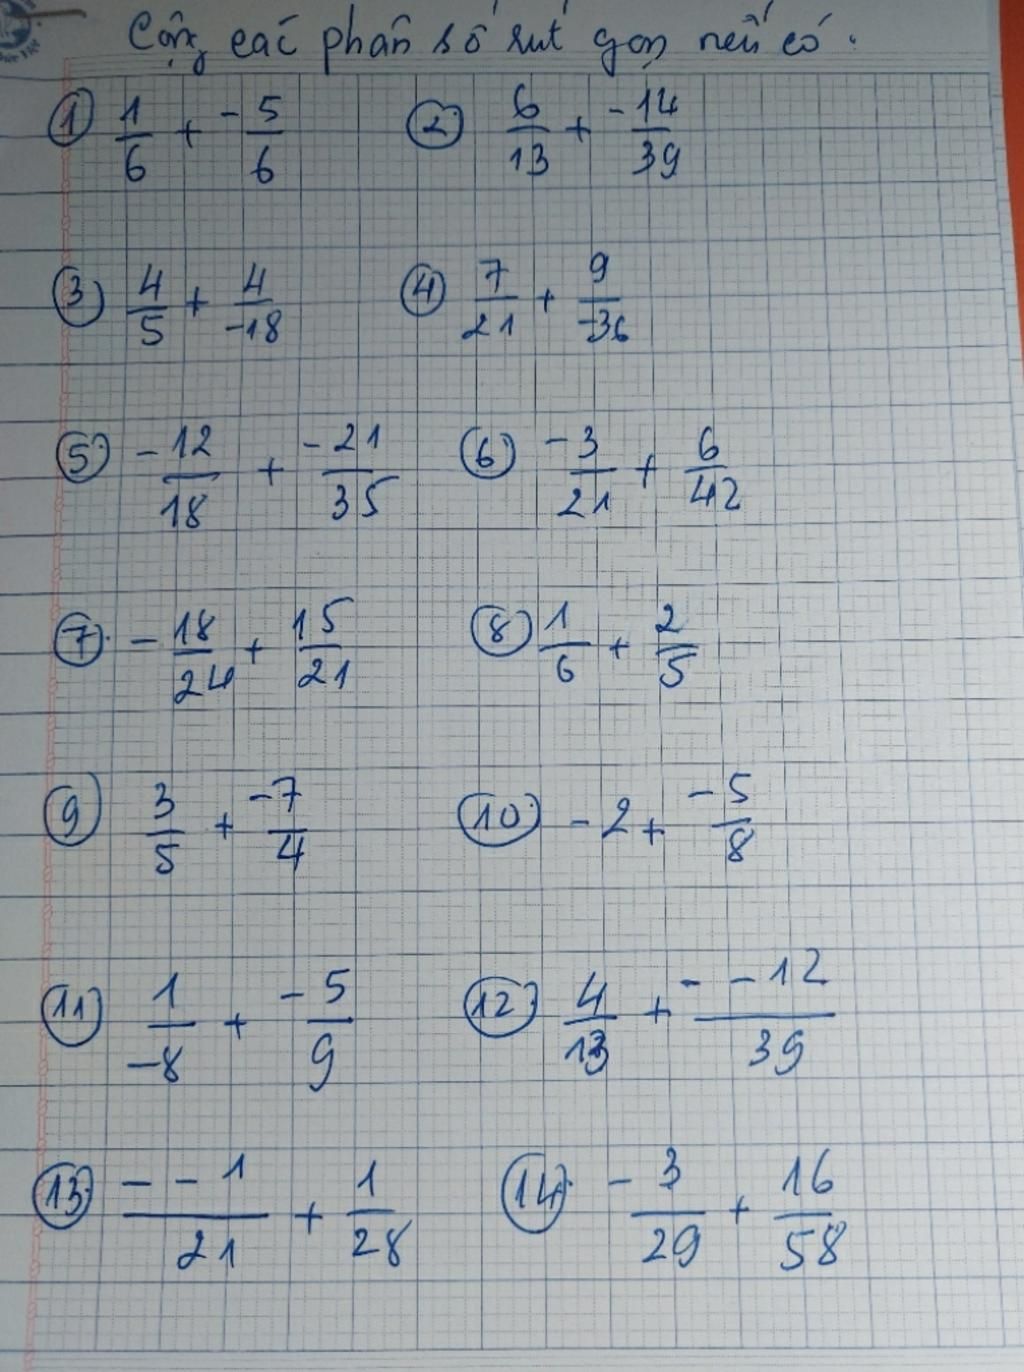 Cộng các phân số rút gọn nếu có.
① 1/6 + -5/6 ② 6/13 + -14/39
③ 4/5 + 4/-18 ④ 7/21 + 9/-36
⑤ -12/18 + -21/35 ⑥ -3/21 + 6/42
⑦ -18/24 + 15/21 ⑧ 1/6 + 2/5
⑨ 3/5 + -7/4 ⑩ -2 + -5/8
⑪ 1/-8 + -5/9 ⑫ 4/13 + - -12/39
⑬ - -1/21 + 1/28 ⑭ -3/29 + 16/58